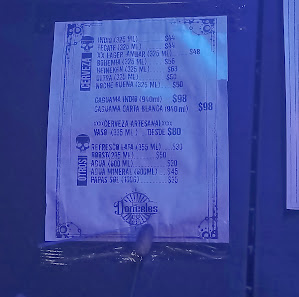 CERVEZA
INDIO (325 ML) $44
TECATE (325 ML) $44
XX LAGER AMBAR (325 ML) $48
BOHEMIA (325 ML) $56
HEINEKEN (325 ML)
ULTRA (325 ML) $50
NOCHE BUENA (325 ML) $50
CAGUAMA INDIO (940ml) $98
CAGUAMA CARTA BLANCA (940 ml) $98
CERVEZA ARTESANAL
VASO (335 ML) DESDE $80
OTROS
REFRESCO LATA (355 ML)
BOOST (235 ML) $50
AGUA (600 ML)
AGUA MINERAL (600ML) $45
PAPAS SOL
Donceles